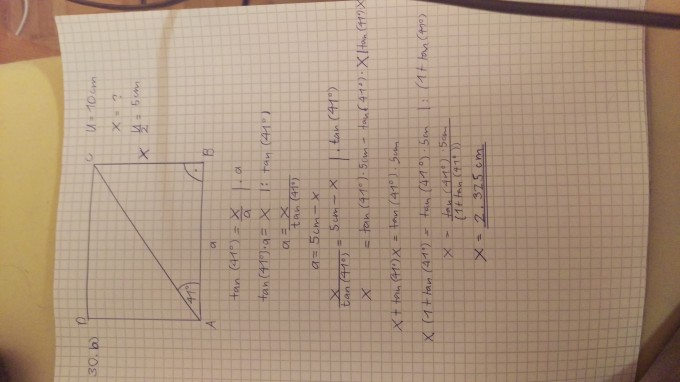 30.b)
D
C
U = 10cm
x = ?
U/2 = 5cm
x
41°
A
a
B
tan(41°) = x/a | · a
tan(41°) · a = x | : tan(41°)
a = x/tan(41°)
a = 5cm - x
x/tan(41°) = 5cm - x | · tan(41°)
x = tan(41°) · 5cm - tan(41°) · x | tan(41°)x
x + tan(41°)x = tan(41°) · 5cm
x (1 + tan(41°)) = tan(41°) · 5cm | : (1 + tan(41°)
x = tan(41°) · 5cm/(1 + tan(41°))
x = 2.325 cm